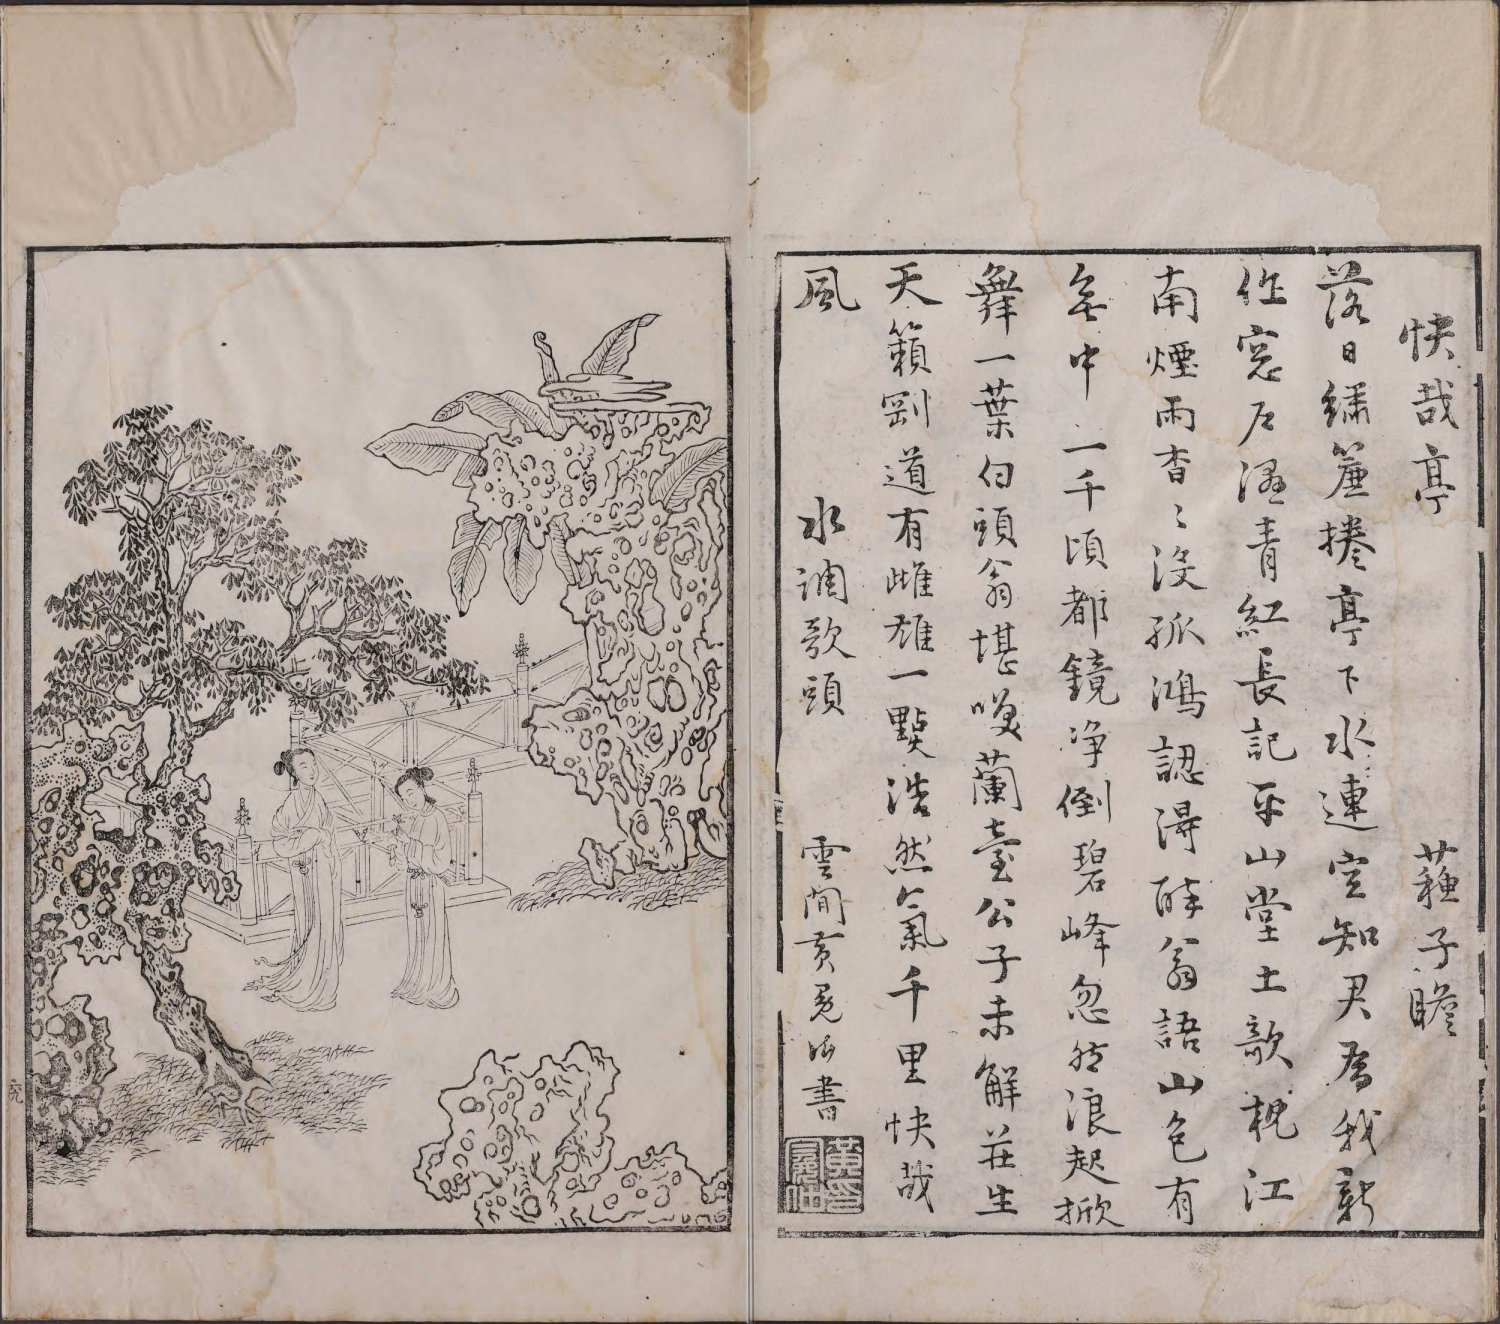 快哉亭 蘓子瞻
落日繡簾捲亭下水連空知君為我新
作窓户濕青紅長記平山堂上欹枕江
南煙雨杳〻沒孤鴻認得醉翁語山色有
無中一千頃都鏡净倒碧峰忽然浪起掀
舞一葉白頭翁堪咲蘭臺公子未解莊生
天籟剛道有雌雄一點浩然氣千里快哉
風 水調歌頭 雲間黃冕仲書
黃印冕仲